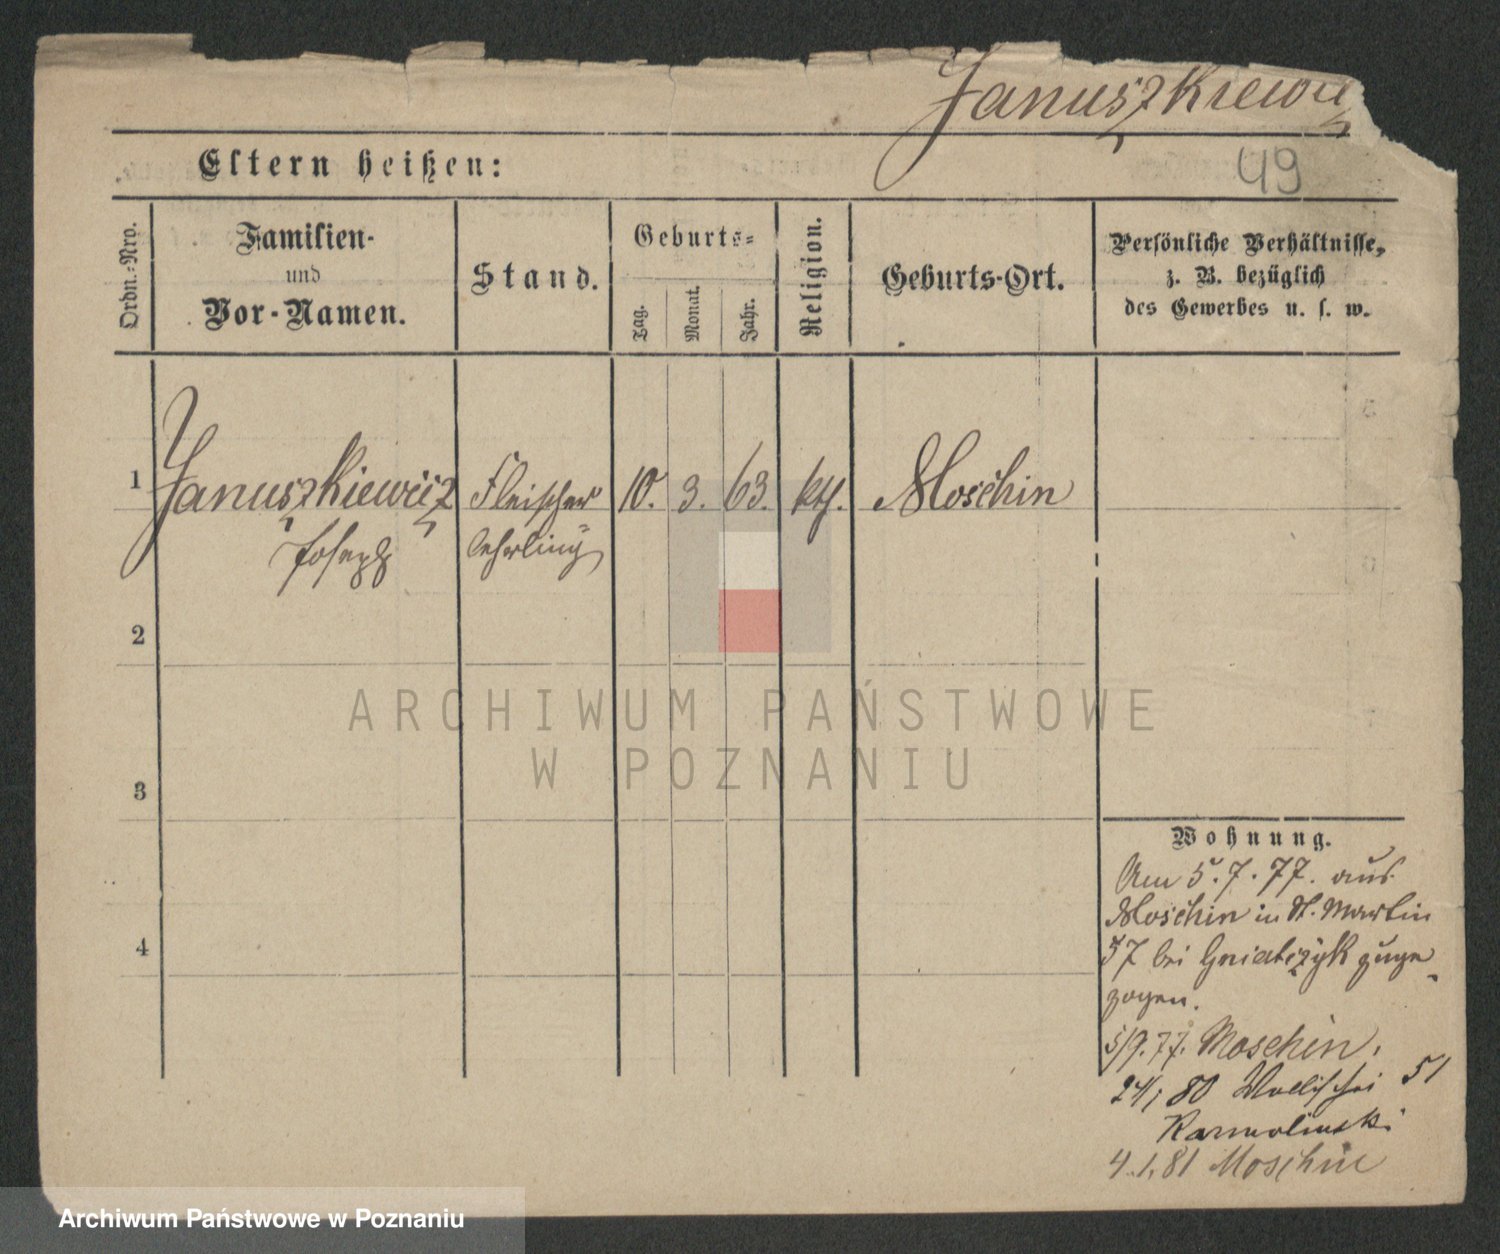 Januszkiewicz
49
Eltern heißen:
Ordn.-Nro.
Familien-
und
Vor-Namen.
Stand.
Geburts-
Tag.
Monat.
Jahr.
Religion.
Geburts-Ort.
Persönliche Verhältnisse,
z. B. bezüglich
des Gewerbes u. s. w.
1 Januszkiewicz Fleischer 10. 3. 63. kth. Moschin
Joseph lehrling
2
3
4
Wohnung.
Am 5.7.77. aus
Moschin in St. Martin
57 bei Gniatczyk zuge-
zogen.
5/9.77. Moschin.
24/1 80 bei 51
Karmolinski
4.1.81 Moschin
ARCHIWUM PAŃSTWOWE
W POZNANIU
Archiwum Państwowe w Poznaniu